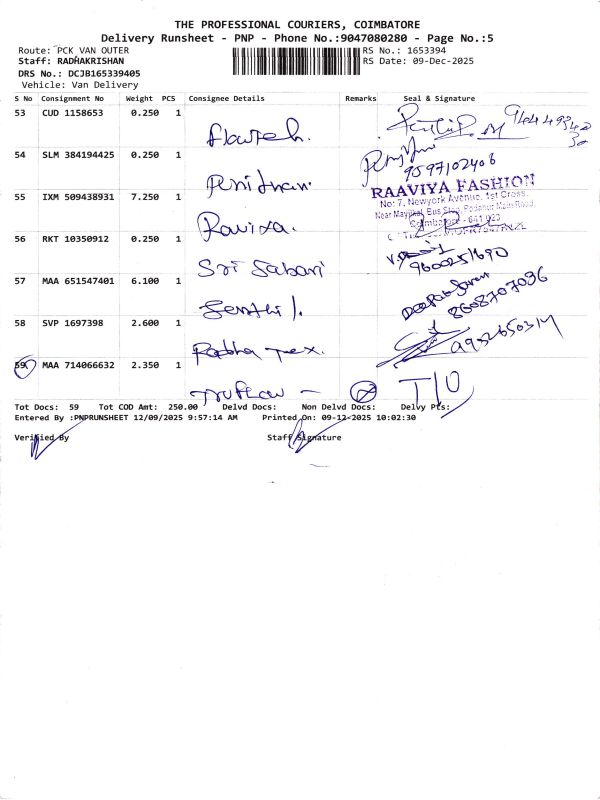 THE PROFESSIONAL COURIERS, COIMBATORE
Delivery Runsheet - PNP - Phone No.:9047080280 - Page No.:5
Route: PCK VAN OUTER RS No.: 1653394
Staff: RADHAKRISHAN RS Date: 09-Dec-2025
DRS No.: DCJB165339405
Vehicle: Van Delivery
S No Consignment No Weight PCS Consignee Details Remarks Seal & Signature
53 CUD 1158653 0.250 1
54 SLM 384194425 0.250 1
9597102406
RAAVIYA FASHION
No: 7, Newyork Avenue, 1st Cross,
55 IXM 509438931 7.250 1
Near Mayilkal Bus Stop, Podanur Main Road,
Ravixa.
Coimbatore - 641 023
56 RKT 10350912 0.250 1
9600251690
Sri Sabari
57 MAA 651547401 6.100 1
8608707036
Senthil.
58 SVP 1697398 2.600 1
Radha Tex.
59 MAA 714066632 2.350 1
T/O
Tot Docs: 59 Tot COD Amt: 250.00 Delvd Docs: Non Delvd Docs: Delvy Pts:
Entered By :PNPRUNSHEET 12/09/2025 9:57:14 AM Printed On: 09-12-2025 10:02:30
Verified By Staff Signature